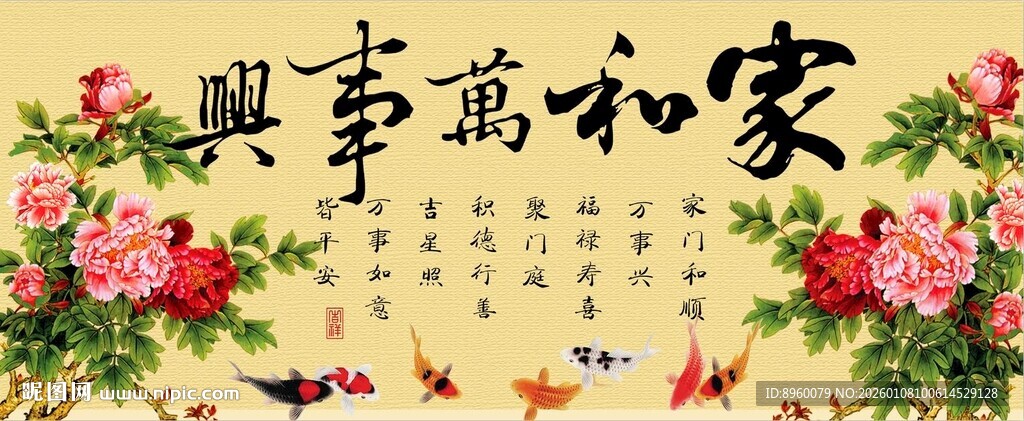 家和萬事興
家门和顺
万事兴
福禄寿喜
聚门庭
积德行善
吉星照
万事如意
皆平安
吉祥
昵图网 www.nipic.com
ID:8960079 NO:20260108100614529128